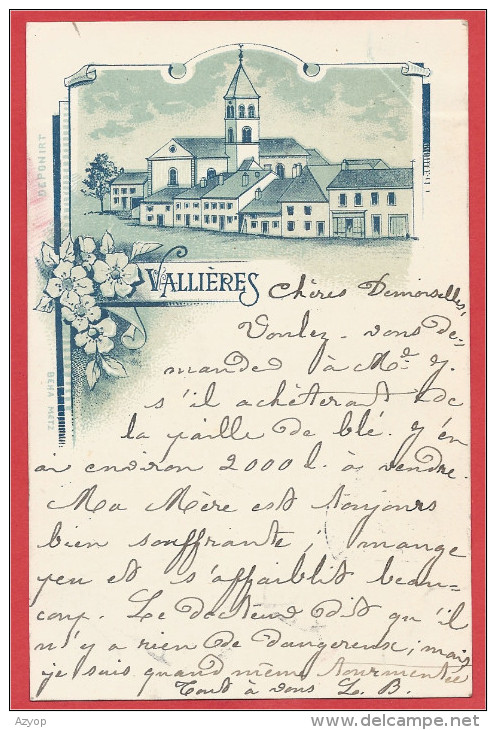 DEPONIRT
BEHA METZ
VALLIÈRES
Chères Demoiselles,
Voulez-vous de-
mander à Mr. J.
s'il achèterait de
la paille de blé. J'en
ai environ 2000 l. à vendre.
Ma Mère est toujours
bien souffrante ; mange
peu et s'affaiblit beau-
coup. Le docteur dit qu'il
n'y a rien de dangereux ; mais
je suis quand même tourmentée
Tout à vous L. B.
Azyop
www.delcampe.net